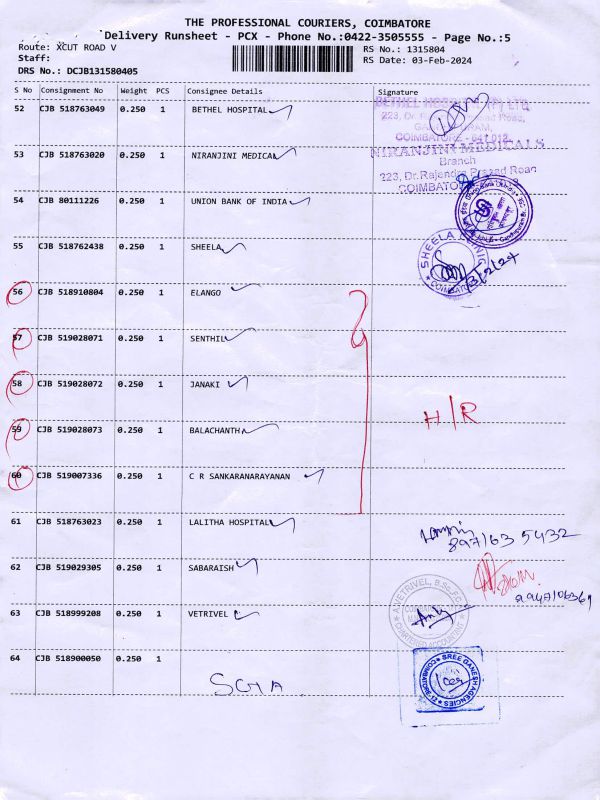 THE PROFESSIONAL COURIERS, COIMBATORE
Delivery Runsheet - PCX - Phone No.:0422-3505555 - Page No.:5
Route: XCUT ROAD V RS No.: 1315804
Staff: RS Date: 03-Feb-2024
DRS No.: DCJB131580405
S No Consignment No Weight PCS Consignee Details Signature
52 CJB 518763049 0.250 1 BETHEL HOSPITAL
COIMBATORE - 641 012
53 CJB 518763020 0.250 1 NIRANJINI MEDICAL
NIRANJINI MEDICALS
Branch
223, Dr. Rajendra Prasad Road
COIMBATORE
54 CJB 80111226 0.250 1 UNION BANK OF INDIA
55 CJB 518762438 0.250 1 SHEELA
SHEELA CLINIC
COIMBATORE
3/2/24
56 CJB 518910804 0.250 1 ELANGO
57 CJB 519028071 0.250 1 SENTHIL
58 CJB 519028072 0.250 1 JANAKI
H/R
59 CJB 519028073 0.250 1 BALACHANTH
60 CJB 519007336 0.250 1 C R SANKARANARAYANAN
61 CJB 518763023 0.250 1 LALITHA HOSPITAL
897163 5432
62 CJB 519029305 0.250 1 SABARAISH
63 CJB 518999208 0.250 1 VETRIVEL
A. VETRIVEL, B.Sc., F.C.A.
CHARTERED ACCOUNTANT
64 CJB 518900050 0.250 1
SGA
SREE GANESH AGENCIES
COIMBATORE-12